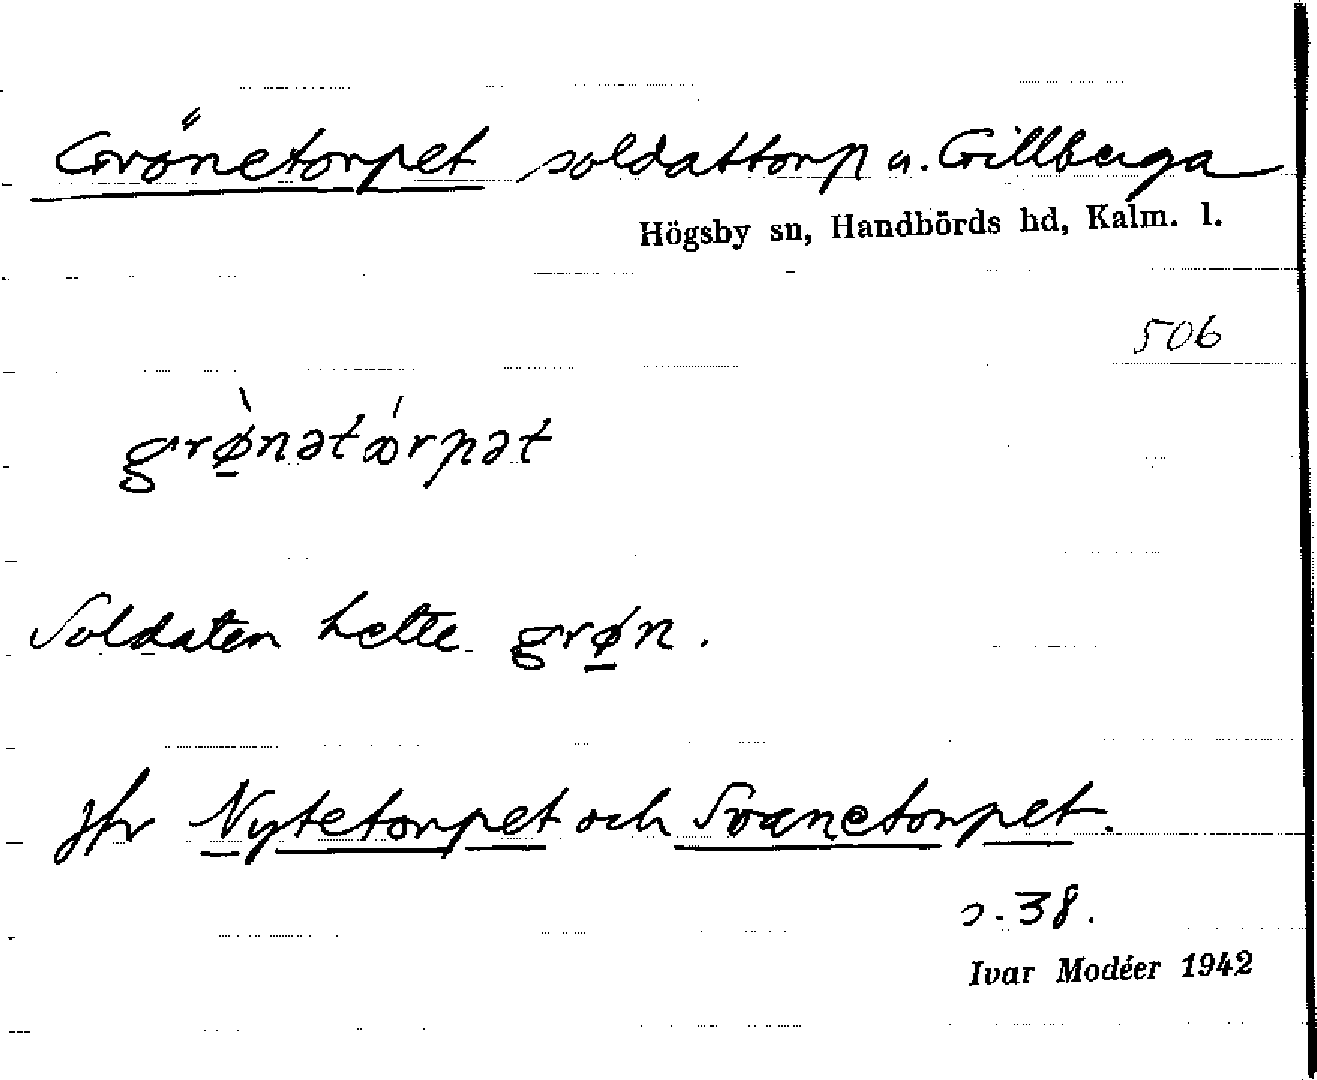 Grönetorpet soldattorp u. Gillberga
Högsby sn, Handbörds hd, Kalm. l.
506
grø̀nətǿrpət
Soldaten hette grøn.
jfr Nytetorpet och Svanetorpet.
s. 38.
Ivar Modéer 1942